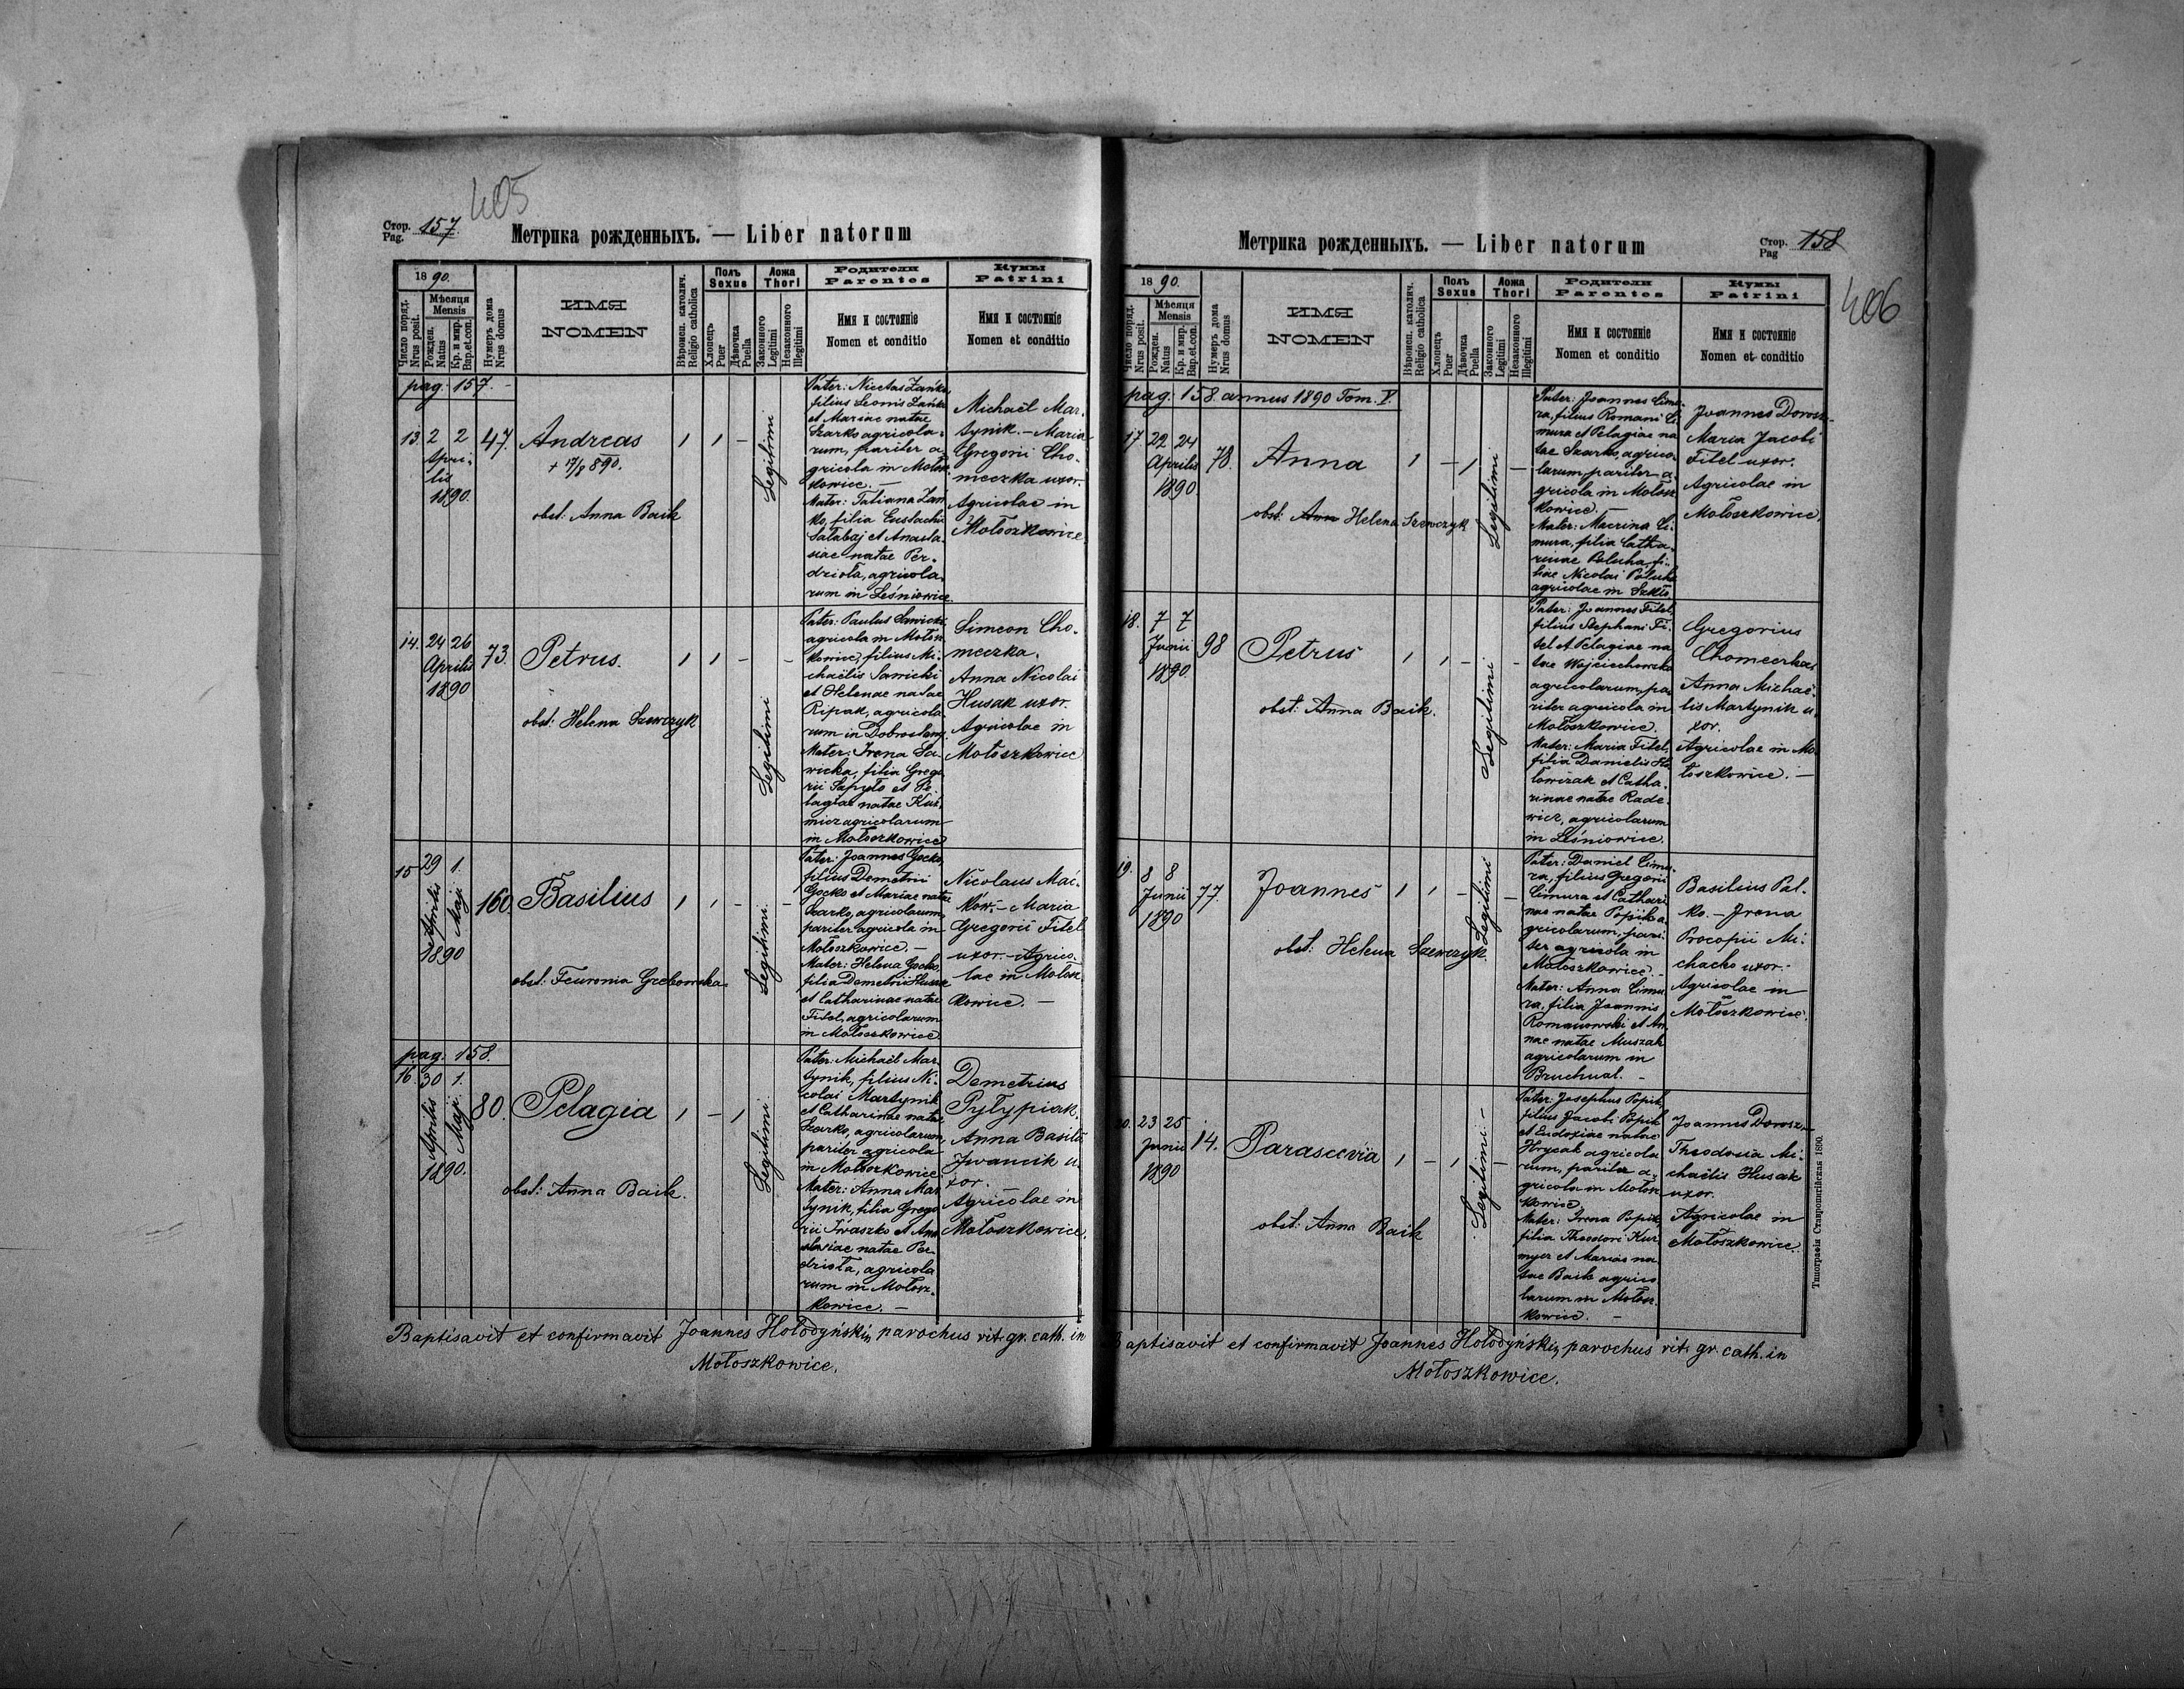 405
Стор.
Pag. 157.
Метрика рожденныхъ. — Liber natorum
18 90.
Число поряд.
Nrus posit.
Мѣсяця
Mensis
Рожден.
Natus
Кр. и мир.
Bap.et.con.
Нумеръ дома
Nrus domus
ИМЯ
NOMEN
Вѣроисп. католич.
Religio catholica
Полъ
Sexus
Хлопецъ
Puer
Дѣвочка
Puella
Ложа
Thori
Законного
Legitimi
Незаконного
Illegitimi
Родители
Parentes
Имя и состояніе
Nomen et conditio
Кумы
Patrini
Имя и состояніе
Nomen et conditio
pag. 157. -
13. 2 2
Apri-
lis
1890.
47.
Andreas
+ 17/8 890.
obst: Anna Baik
1 1 -
Legitimi
Pater: Nicetas Zańko,
filius Leonis Zańko
et Mariae natae
Szarko agricola-
rum, pariter a-
gricola in Mołosz-
kowice. -
Mater: Tatiana Zań-
ko, filia Eustachii
Salabaj et Anasta-
siae natae Per-
dzioła, agricola-
rum in Leśniowice.
Michaël Mar-
tynik. - Maria
Gregorii Cho-
meczka uxor.
Agricolae in
Mołoszkowice.
14. 24 26
Aprilis
1890
73.
Petrus.
obst: Helena Szewczyk
1 1 - -
Legitimi
Pater: Paulus Sawicki,
agricola in Mołosz-
kowice, filius Mi-
chaëlis Sawicki
et Helenae natae
Ripak, agricola-
rum in Dobrostany.
Mater: Irena Sa-
wicka, filia Grego-
rii Sapyto et Pe-
lagiae natae Kuś-
mierz agricolarum
in Mołoszkowice
Simeon Cho-
meczka.
Anna Nicolai
Husak uxor.
Agricolae in
Mołoszkowice
15 29 1.
Aprilis
Maji
1890
160.
Basilius
obst: Feuronia Grebowska
1 1 - -
Legitimi
Pater: Joannes Gocko,
filius Demetrii
Gocko et Mariae natae
Szarko, agricolarum,
pariter agricola in
Mołoszkowice. -
Mater: Helena Gocko,
filia Demetrii Husak
et Catharinae natae
Fitel, agricolarum
in Mołoszkowice
Nicolaus Mać-
ków. - Maria
Gregorii Fitel
uxor. - Agrico-
lae in Mołosz-
kowice. -
pag. 158.
16. 30 1.
Aprilis
Maji
1890.
80.
Pelagia
obst: Anna Baik.
1 - 1
Legitimi
Pater: Michaël Mar-
tynik, filius Ni-
colai Martynik
et Catharinae natae
Szarko, agricolarum,
pariter agricola
in Mołoszkowice
Mater: Anna Mar-
tynik, filia Grego-
rii Iwaszko et Ana-
stasiae natae Per-
dzioła, agricola-
rum in Mołosz-
kowice. -
Demetrius
Pyłypiak.
Anna Basilii
Iwancik u-
xor.
Agricolae in
Mołoszkowice.
Baptisavit et confirmavit Joannes Hołodyński, parochus rit. gr. cath. in
Mołoszkowice.
Метрика рожденныхъ. — Liber natorum
Стор.
Pag 158
406
18 90.
Число поряд.
Nrus posit.
Мѣсяця
Mensis
Рожден.
Natus
Кр. и мир.
Bap.et.con.
Нумеръ дома
Nrus domus
ИМЯ
NOMEN
Вѣроисп. католич.
Religio catholica
Полъ
Sexus
Хлопецъ
Puer
Дѣвочка
Puella
Ложа
Thori
Законного
Legitimi
Незаконного
Illegitimi
Родители
Parentes
Имя и состояніе
Nomen et conditio
Кумы
Patrini
Имя и состояніе
Nomen et conditio
pag. 158. annus 1890 Tom. V.
17. 22 24
Aprilis
1890
78.
Anna
obst: Ann Helena Szewczyk
1 - 1 -
Legitimi
Pater: Joannes Cimu-
ra, filius Romani Ci-
mura et Pelagiae na-
tae Szarko, agrico-
larum, pariter a-
gricola in Mołosz-
kowice. -
Mater: Macrina Ci-
mura, filia Catha-
rinae Połucha, fi-
liae Nicolai Połucha
agricolae in Szkło.
Joannes Dorosz.
Maria Jacobi
Fitel uxor.
Agricolae in
Mołoszkowice.
18. 7 7
Junii
1890
98
Petrus
obst: Anna Baik.
1 1 - -
Legitimi
Pater: Joannes Fitel,
filius Stephani Fi-
tel et Pelagiae na-
tae Wojciechowska
agricolarum, pa-
riter agricola in
Mołoszkowice.
Mater: Maria Fitel,
filia Danielis Ho-
łowczak et Catha-
rinae natae Rade-
wicz, agricolarum
in Leśniowice.
Gregorius
Chomeczka.
Anna Michaë-
lis Martynik u-
xor.
Agricolae in Mo-
łoszkowice. -
19. 8 8
Junii
1890
77.
Joannes
obst: Helena Szewczyk
1 1 - -
Legitimi
Pater: Daniel Cimu-
ra, filius Gregorii
Cimura et Cathari-
nae natae Popik a-
gricolarum, pari-
ter agricola in
Mołoszkowice. -
Mater: Anna Cimu-
ra, filia Joannis
Romanowski et An-
nae natae Muszak
agricolarum in
Bruchnal. -
Basilius Pal-
ko. - Irena
Procopii Mi-
chacko uxor. -
Agricolae in
Mołoszkowice.
20. 23 25
Junii
1890
14.
Parascevia
obst: Anna Baik
1 - 1 -
Legitimi -
Pater: Josephus Popik,
filius Jacobi Popik
et Eudoxiae natae
Hrycak agricola-
rum, pariter a-
gricola in Mołosz-
kowice.
Mater: Irena Popik,
filia Theodori Kur-
myer et Mariae na-
tae Baik agrico-
larum in Mołosz-
kowice. -
Joannes Dorosz. -
Theodosia Mi-
chaëlis Husak
uxor.
Agricolae in
Mołoszkowice.
Типографія Ставропигійская 1890.
Baptisavit et confirmavit Joannes Hołodyński, parochus rit. gr. cath. in
Mołoszkowice.